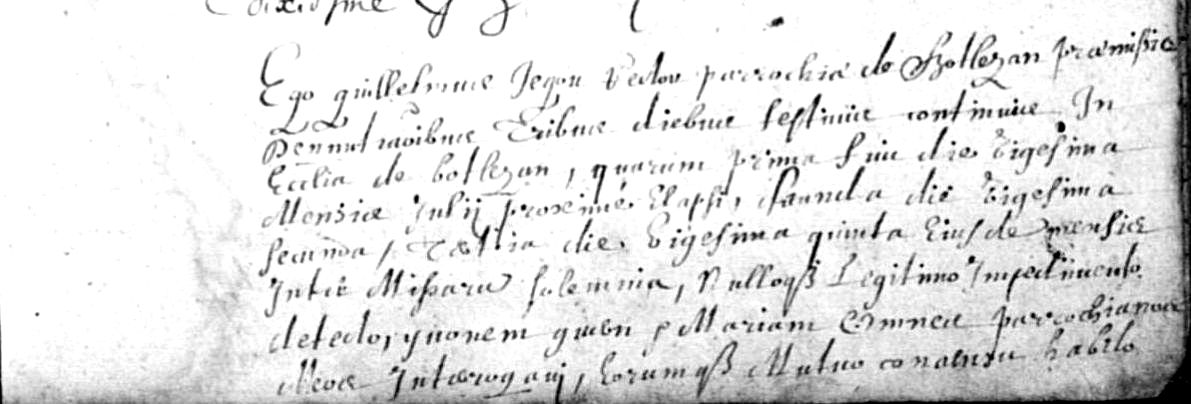 Ego guillelmus Jegou Rector parrochiæ de Botlezan præmissis
denuntiaõibus Tribus diebus festiuis continuis In
Ecclia de botlezan, quarum prima fuit die Vigesima
Mensis Julij proximè Elapsi, secunda die Vigesima
secunda, Tertia die Vigesima quinta Eiusdem mensis
Inter Missarũ solemnia, Nulloq̃ Legitimo Impedimento
detecto, yuonem quen & Mariam parrochianos
Meos Interrogaui, Eorumq̃ Mutuo consensu habito